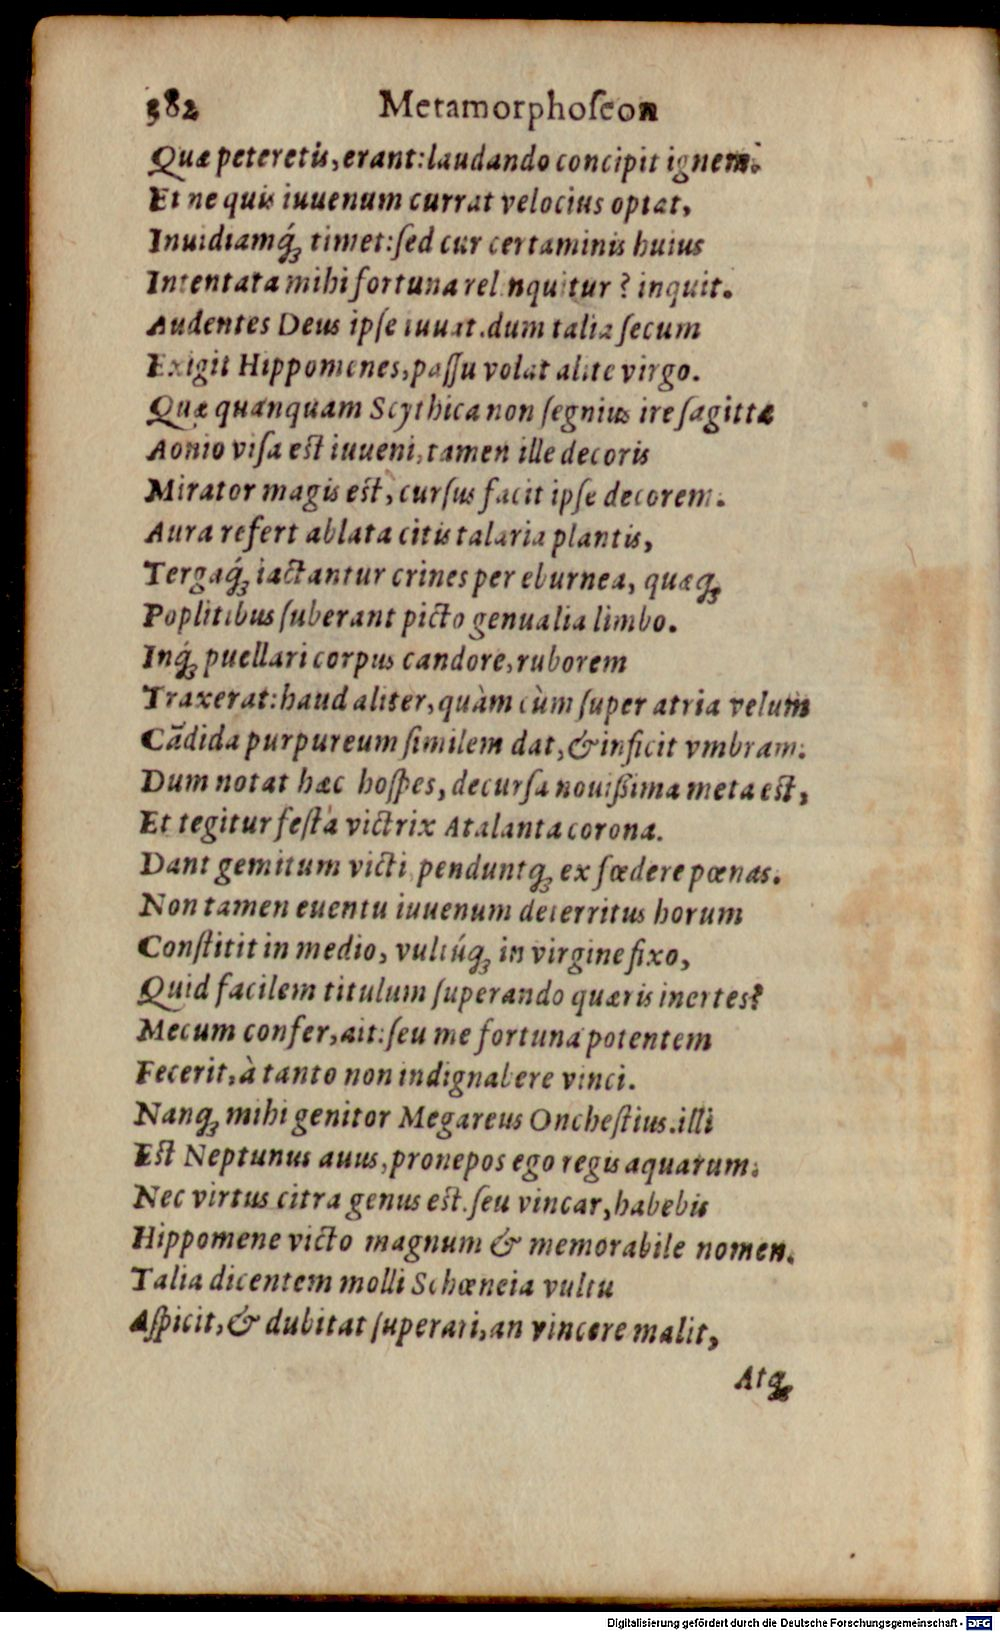 382 Metamorphoſeon
Quæ peteretis, erant: laudando concipit ignem.
Et ne quis iuuenum currat velocius optat,
Inuidiamq́; timet: ſed cur certaminis huius
Intentata mihi fortuna relinquitur? inquit.
Audentes Deus ipſe iuuat. dum talia ſecum
Exigit Hippomenes, paſſu volat alite virgo.
Quæ quanquam Scythica non ſegnius ire ſagitta
Aonio viſa est iuueni, tamen ille decoris
Mirator magis est, curſus facit ipſe decorem.
Aura refert ablata citis talaria plantis,
Tergaq́; iactantur crines per eburnea, quæq;
Poplitibus ſuberant picto genualia limbo.
Inq́; puellari corpus candore, ruborem
Traxerat: haud aliter, quàm cùm ſuper atria velum
Cãdida purpureum ſimilem dat, & inficit vmbram.
Dum notat hæc hoſpes, decurſa nouißima meta est,
Et tegitur feſta victrix Atalanta corona.
Dant gemitum victi penduntq; ex fœdere pœnas.
Non tamen euentu iuuenum deterritus horum
Conſtitit in medio, vultúq; in virgine fixo,
Quid facilem titulum ſuperando quæris inertes?
Mecum confer, ait: ſeu me fortuna potentem
Fecerit, à tanto non indignabere vinci.
Nanq; mihi genitor Megareus Oncheſtius. illi
Est Neptunus auus, pronepos ego regis aquarum.
Nec virtus citra genus est. ſeu vincar, habebis
Hippomene victo magnum & memorabile nomen.
Talia dicentem molli Schœneia vultu
Aſpicit, & dubitat ſuperari, an vincere malit,
Atq;
Digitalisierung gefördert durch die Deutsche Forschungsgemeinschaft - DFG